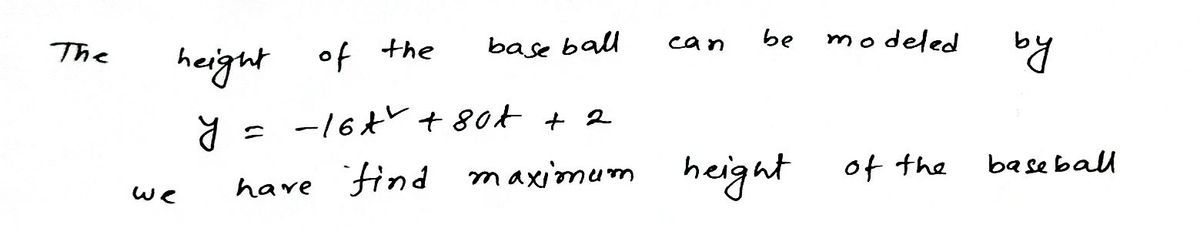 The height of the baseball can be modeled by
y = -16t² + 80t + 2
we have find maximum height of the baseball